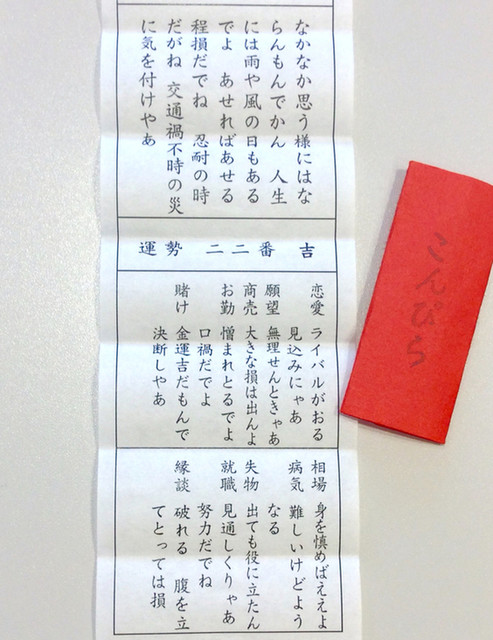 なかなか思う様にはな
らんもんでかん 人生
には雨や風の日もある
でよ あせればあせる
程損だでね 忍耐の時
だがね 交通禍不時の災
に気を付けやあ
運勢 二二番 吉
恋愛 ライバルがおる
見込みにゃあ
願望 無理せんときゃあ
商売 大きな損は出んよ
お勤 憎まれとるでよ
口禍だでよ
賭け 金運吉だもんで
決断しやあ
相場 身を慎めばええよ
病気 難しいけどよう
なる
失物 出ても役に立たん
就職 見通しくりゃあ
努力だでね
縁談 破れる 腹を立
てとっては損
こんぴら